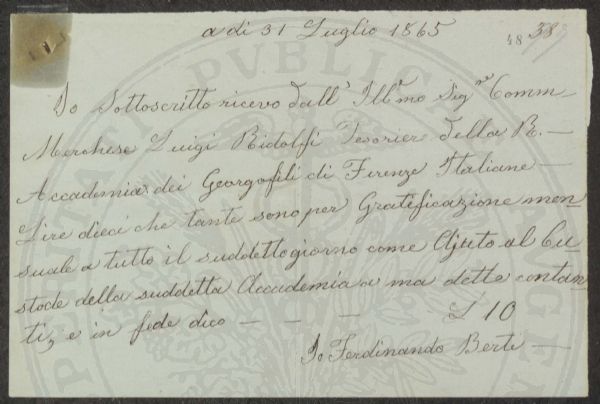 a di 31 Luglio 1865
48 38
Io Sottoscritto ricevo dall' Ill.mo Sig.re Comm
Marchese Luigi Ridolfi Tesorier della R. —
Accademia dei Georgofili di Firenze Italiane —
Lire dieci che tante sono per Gratificazione men
suale a tutto il suddetto giorno come Ajuto al Cu
stode della suddetta Accademia a ma dette contan
ti, e in fede dico — — — £ 10
Io Ferdinando Berti —